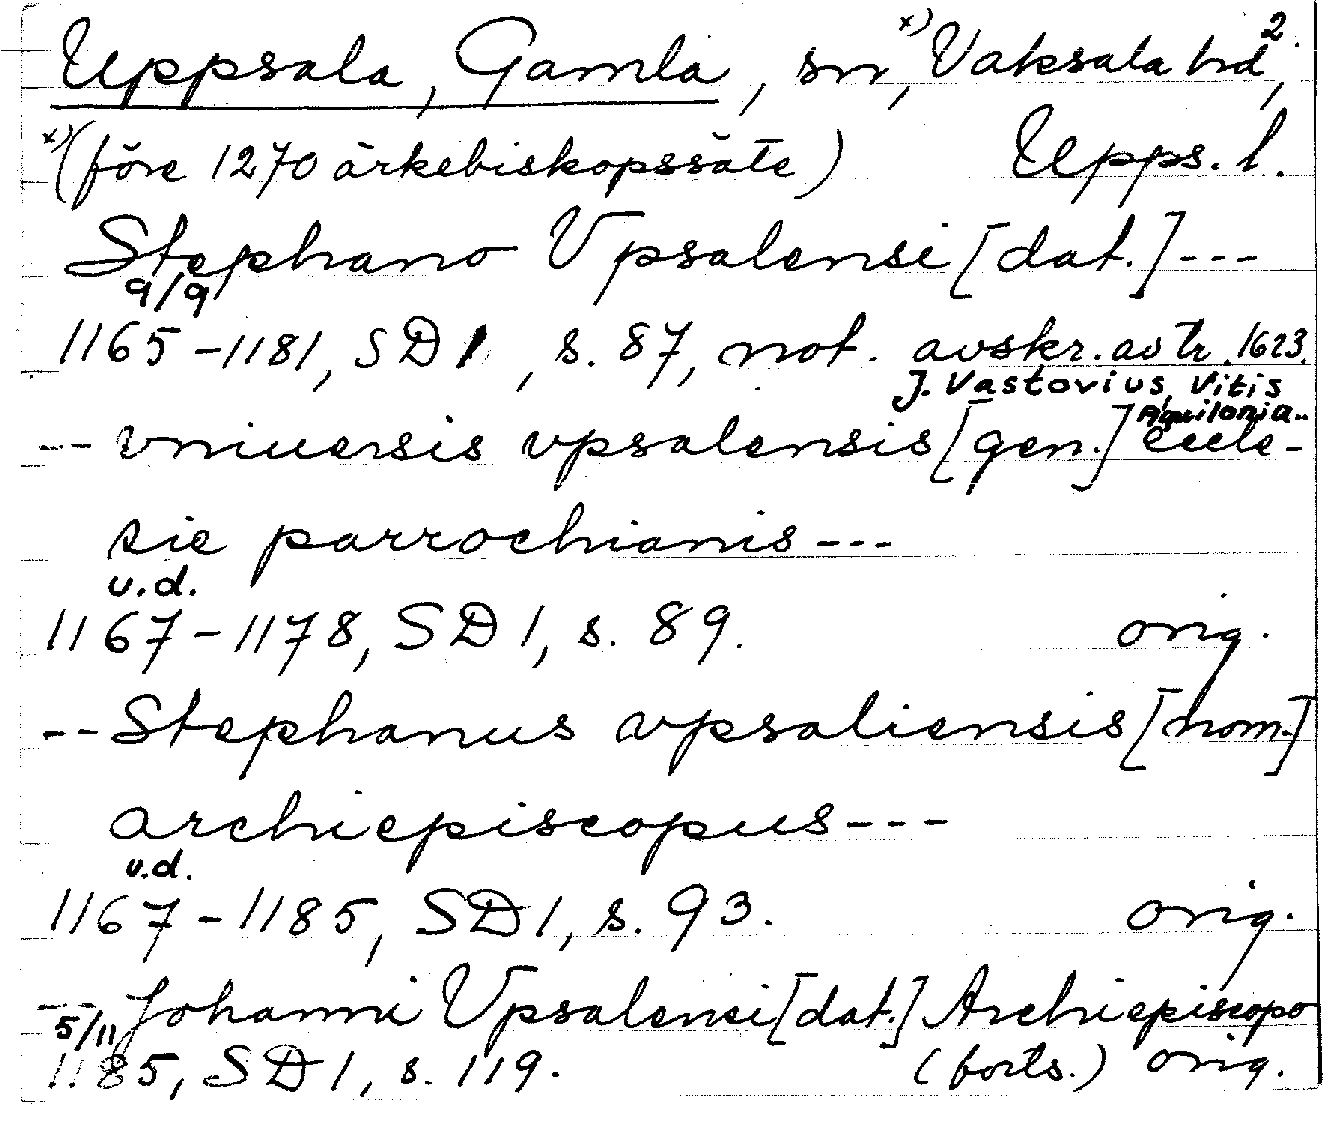 Uppsala, Gamla, sn, x) Vaksala hd, 2.
x) (före 1270 ärkebiskopssäte) Upps. l.
Stephano Vpsalensi [dat.] ---
9/9
1165-1181, SD 1, s. 87, not. avskr. av tr. 1623.
J. Vastovius, Vitis
Aquilonia..
-- vniuersis vpsalensis [gen.] eccle-
sie parrochianis ---
u.d.
1167-1178, SD 1, s. 89. orig.
-- Stephanus vpsaliensis [nom.]
archiepiscopus ---
u.d.
1167-1185, SD 1, s. 93. orig.
-- Johanni Vpsalensi [dat.] Archiepiscopo
5/11
1185, SD 1, s. 119. (forts.) orig.